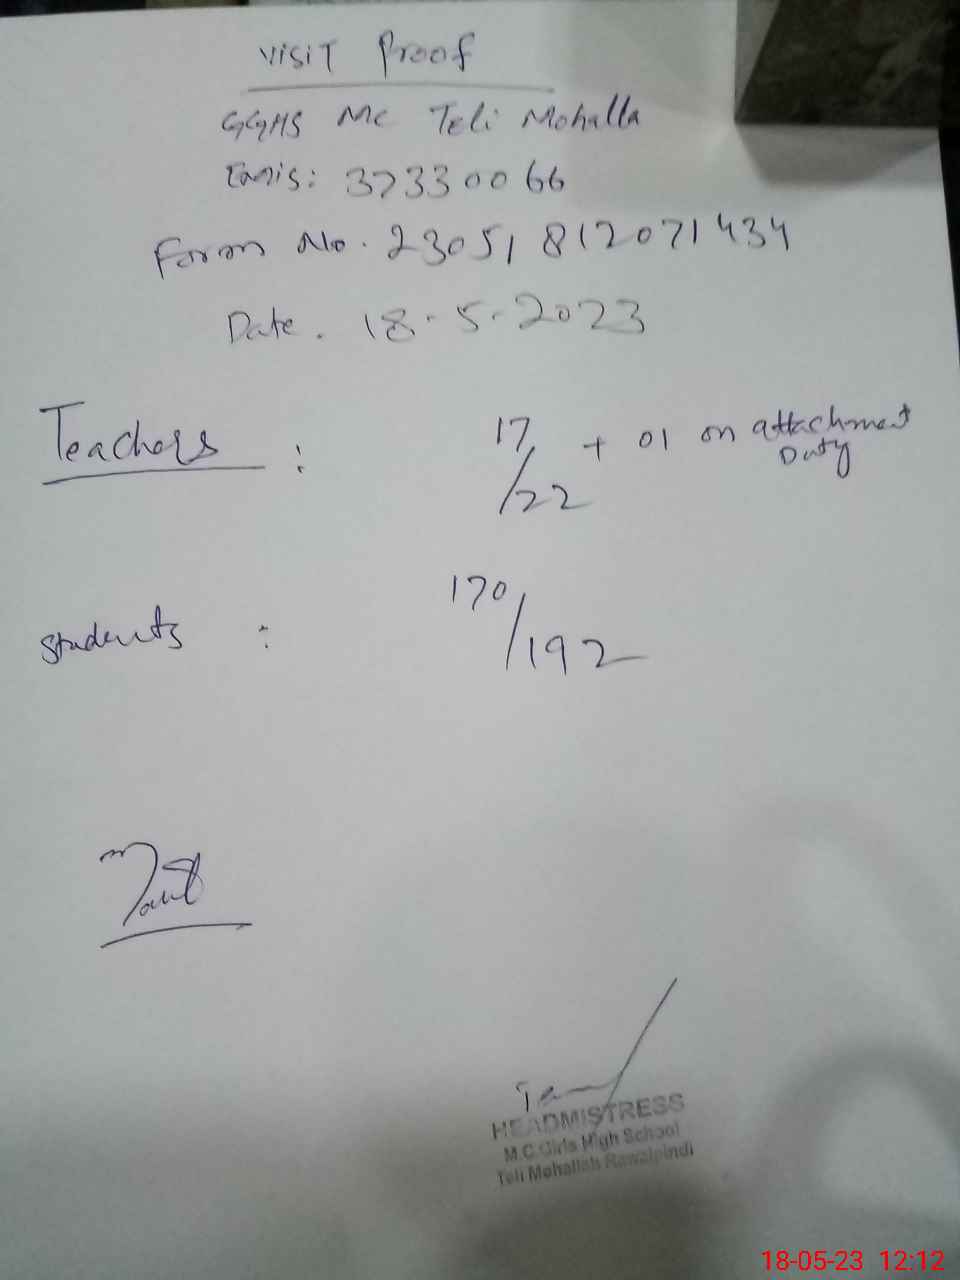 Visit Proof
GGHS MC Teli Mohalla
Emis: 37330066
Form No. 23051812071434
Date. 18-5-2023
Teachers : 17/22 + 01 on attachment Duty
students : 170/192
HEADMISTRESS
M.C Girls High School
Teli Mohallah Rawalpindi
18-05-23 12:12